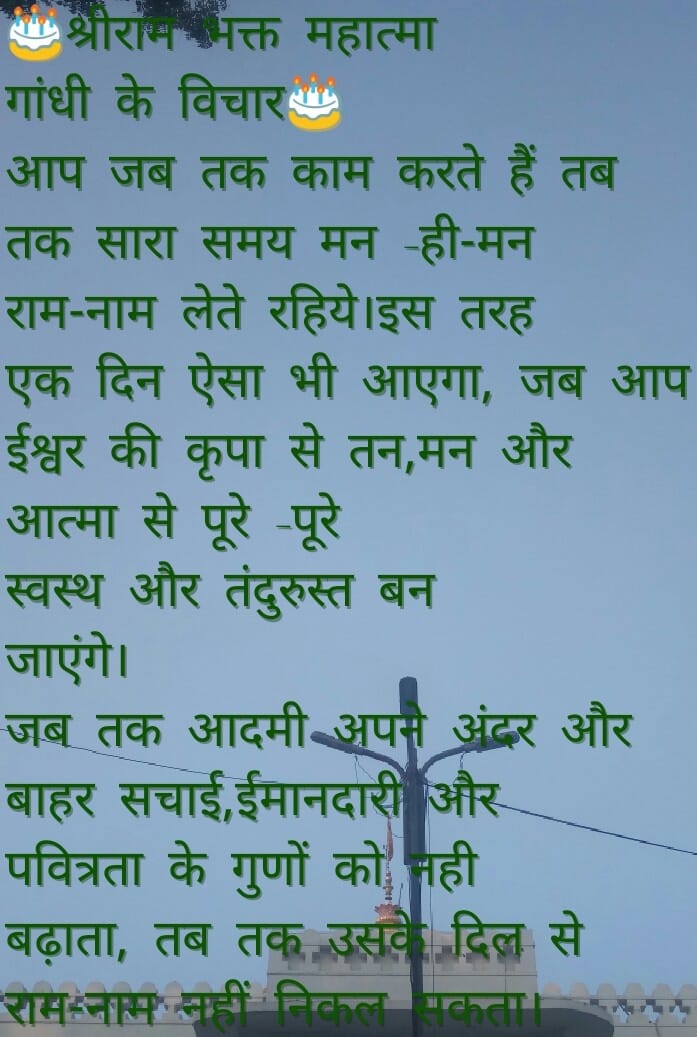 🎂श्रीराम भक्त महात्मा
गांधी के विचार🎂
आप जब तक काम करते हैं तब
तक सारा समय मन -ही-मन
राम-नाम लेते रहिये।इस तरह
एक दिन ऐसा भी आएगा, जब आप
ईश्वर की कृपा से तन,मन और
आत्मा से पूरे -पूरे
स्वस्थ और तंदुरुस्त बन
जाएंगे।
जब तक आदमी अपने अंदर और
बाहर सचाई,ईमानदारी और
पवित्रता के गुणों को नही
बढ़ाता, तब तक उसके दिल से
राम-नाम नहीं निकल सकता।